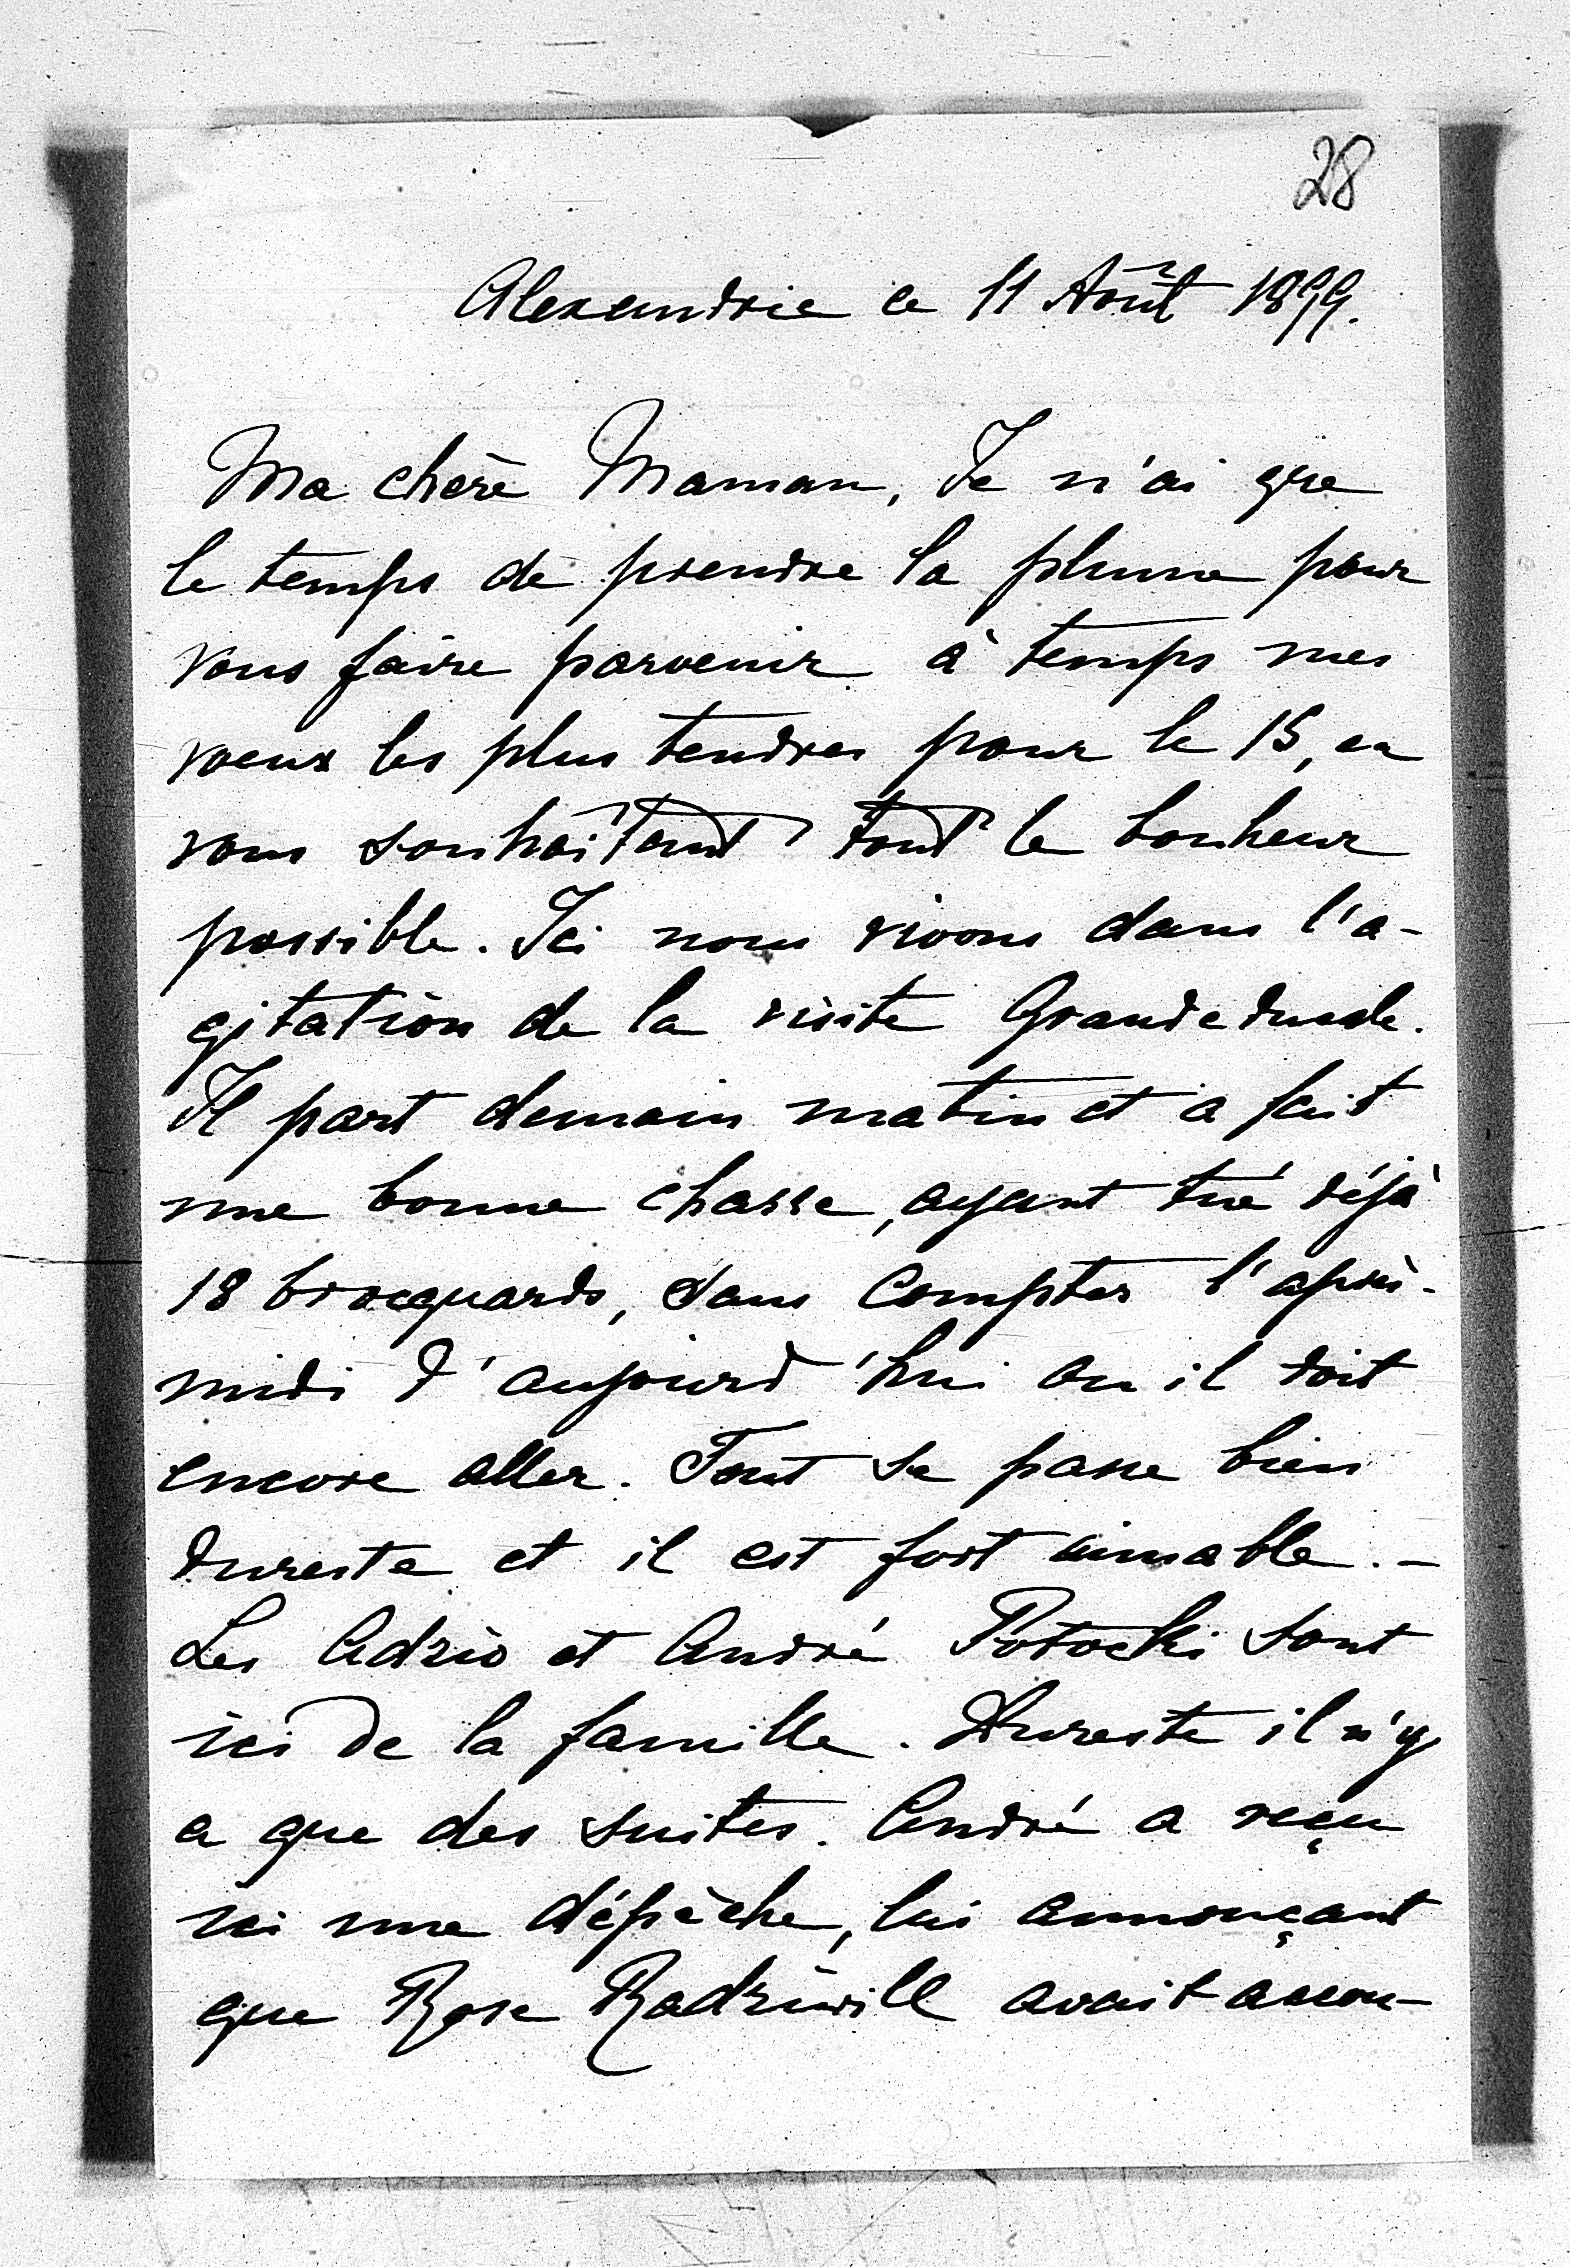 28
Alexandrie ce 11 Août 1899.
Ma chère Maman, Je n'ai que
le temps de prendre la plume pour
vous faire parvenir à temps mes
voeux les plus tendres pour le 15, en
vous souhaitant tout le bonheur
possible. Ici nous vivons dans l'a-
gitation de la visite Grandeducale.
Il part demain matin et a fait
une bonne chasse, ayant tué déjà
18 brocquards, sans compter l'après-
midi d'aujourd'hui où il doit
encore aller. Tout se passe bien
dureste et il est fort aimable. -
Les Adzio et André Potocki sont
ici de la famille. Dureste il n'y
a que des suites. André a reçu
ici une dépèche, lui annonçant
que Rose Radziwill avait accou-